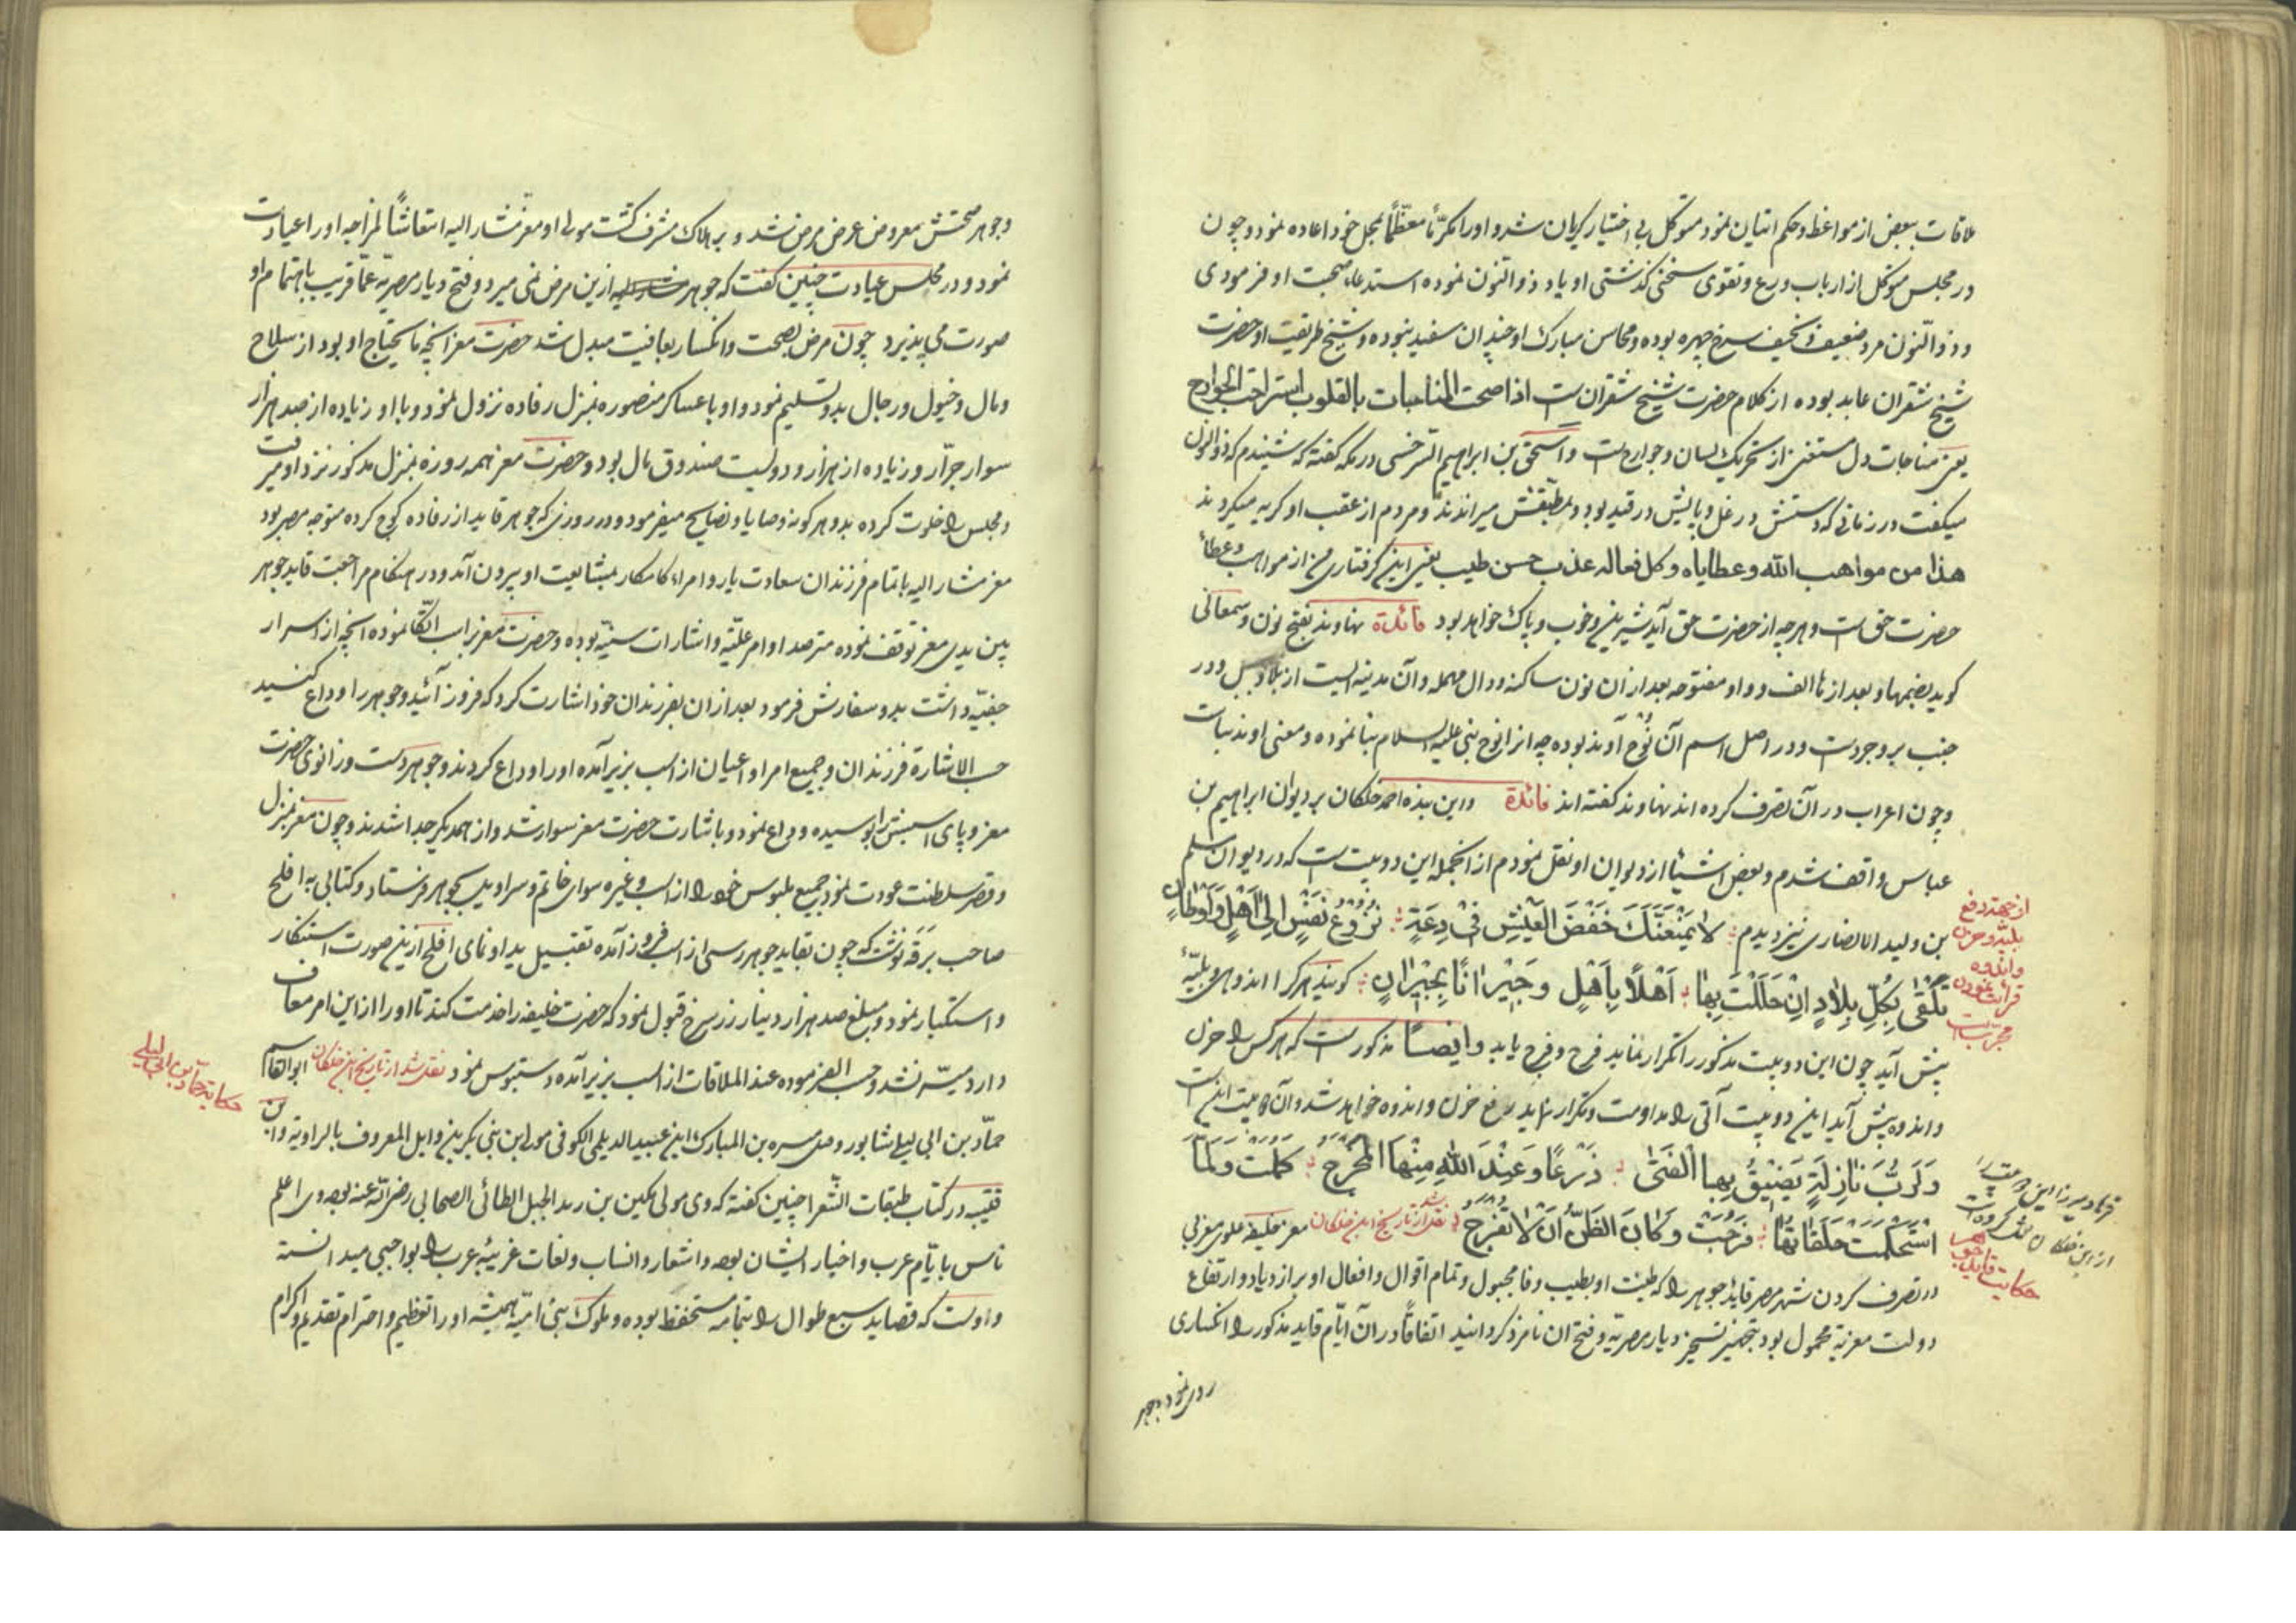 ملاقات ببعض از مواعظ و حکم اتیان نمود متوکل بی اختیار کریان شد و او را مکرّماً معظّماً بمحل خود اعاده نمود و چون
در مجلس متوکل از ارباب ورع و تقوی سخنی کذشتی او یاد ذو النون نموده استدعاء صحبت او فرمودی
و ذو النّون مرد ضعیف و نحیف سرخ چهره بوده و محاسن مبارک او چندان سفید نبوده و شیخ طریقت او حضرت
شیخ شقران عابد بوده از کلام حضرت شیخ شقران است اذا صحت المناجات بالقلوب استراحت الجوارح
یعنی مناجات دل مستغنی از تحریک لسان و جوارح است و اسحق بن ابراهیم السرخسی در مکه کفته که شنیدم که ذو النون
میکفت در زمانی که دستش در غل و پایش در قید بود و بمطبقش میراندند و مردم از عقب او کریه میکردند
هذا من مواهب الله وعطایاه وکل فعاله عذب حسن طیب یعنی این کرفتاری من از مواهب و عطاء
حضرت حق است و هر چه از حضرت حق آید شیرین و خوب و پاک خواهد بود فائدة نهاوند بفتح نون و سمعانی
کوید بضمها و بعد از ها الف و واو مفتوحه بعد از ان نون ساکنه و دال مهمله و آن مدینه ایست از بلاد جبل و در
جنب بروجرد است و در اصل اسم آن نوح آوند بوده چه انرا نوح نبی علیه السلام بنا نموده و معنی اوند بناست
و چون اعراب در آن تصرف کرده اند نهاوند کفته اند فائدة و این بنده احمد خلکان بر دیوان ابراهیم بن
عباس واقف شدم و بعض اشیا از دیوان او نقل نمودم از انجمله این دو بیت است که در دیوان مسلم
بن ولید الانصاری نیز دیدم لا یَمْنَعَنَّکَ خَفْضَ العَیْشِ فی دَعَةٍ نُزُوعُ نَفْسٍ اِلی اَهْلٍ وَاَوْطانٍ
تَلْقی بِکُلِّ بِلادٍ اِنْ حَلَلْتَ بِها اَهْلاً بِاَهْلٍ وَجِیْراناً بِجِیْرانٍ کویند هر کرا اندوهی و بلیّهٔ
پیش آید چون این دو بیت مذکور را تکرار نماید فرح و فرج یابد وایضاً مذکور است که هر کس را حزن
و اندوه پیش آید این دو بیت آتی را مداومت و تکرار نماید رفع حزن و اندوه خواهد شد و آن دو بیت اینست
وَلَرُبَّ نازِلَةٍ یَضیْقُ بِها الفَتی ذَرْعاً وَعِنْدَ اللهِ مِنْها المَخْرَجُ کملت ولمّا
اسْتَحکمت حَلَقاتُها فُرِجَتْ وَکانَ الظَنُّ اَنْ لا تُفْرَجُ نقل شد از تاریخ ابن خلکان معز خلیفهٔ علوی مغربی
در تصرف کردن شهر مصر قاید جوهر را که طینت او بطیب و وفا مجبول و تمام اقوال و افعال او بر ازدیاد و ارتفاع
دولت معزیة محمول بود بتجهیز تسخیر دیار مصریّه و فتح ان نامزد کردانید اتفاقاً در آن ایّام قاید مذکور را انکساری
روی نمود و جوهر
از جهة دفع
بلیّه و حزن
و اندوه
قرائت نمودن
مجرّبست
فرهاد میرزا این دو بیت را
از ابن خلکان نقل کرده است
حکایت قاید جوهر
وجوهر صحتش معروض عرض مرض شد و بر هلاک مشرف کشت مولی او معز مشار الیه استعاشاً لمزاجه او را عیادت
نمود و در مجلس عیادت چنین کفت که جوهر ازین مرض نمی میرد و فتح دیار مصریّه عمّا قریب باهتمام او
صورت می پذیرد چون مرض بصحت و انکسار بعافیت مبدل شد حضرت معز آنچه ما یحتاج او بود از سلاح
و مال و خیول و رجال بدو تسلیم نمود و او با عساکر منصوره بمنزل رفاده نزول نمود و با او زیاده از صد هزار
سوار جرّار و زیاده از هزار و دویست صندوق مال بود و حضرت معز همه روزه بمنزل مذکور نزد او میرفت
و مجلس را خلوت کرده بدو هر کونه وصایا و نصایح میفرمود و در روزی که جوهر قاید از رفاده کوچ کرده متوجه مصر بود
معز مشار الیه با تمام فرزندان سعادت یار و امراء کامکار بمشایعت او بیرون آمد و در هنکام مراجعت قاید جوهر
بین یدی معز توقف نموده مترصد اوامر علیّه و اشارات سنیّه بوده و حضرت معز بر اسب اتّکا نموده آنچه از اسرار
خفیّه داشت بدو سفارش فرمود بعد از ان بفرزندان خود اشارت کرد که فروز آئید و جوهر را وداع کنید
حسب الاشارة فرزندان و جمیع امرا و اعیان از اسب بزیر آمده او را وداع کردند و جوهر دست و زانوی حضرت
معز و پای اسبش را بوسیده وداع نمود و باشارت حضرت معز سوار شد و از همدیکر جدا شدند و چون معز بمنزل
و قصر سلطنت عودت نمود جمیع ملبوس خود را از اسب و غیره سوای خاتم و سراویل بجوهر فرستاد و کتابی به افلح
صاحب بَرَقَه نوشت که چون بقاید جوهر رسی از اسب فروز آمده تقبیل ید او نمای افلح ازین صورت استنکار
و استکبار نمود و مبلغ صد هزار دینار زر سرخ قبول نمود که حضرت خلیفه را خدمت کند تا او را از این امر معاف
دارد میسّر نشد و حسب الفرموده عند الملاقات از اسب بزیر آمده دستبوس نمود نقل شد از تاریخ ابن خلکان ابو القاسم
حمّاد بن ابی لیلی شاپور و قیل میسره بن المبارک ابن عبید الدیلمی الکوفی مولی بنی بکر بن وایل المعروف بالراویة و ابن
قتیبه در کتاب طبقات الشّعرا چنین کفته که وی مولی مکین بن زید الجبل الطائی الصحابی رضی الله عنه بوده وی اعلم
ناس بایّام عرب و اخبار ایشان بوده و اشعار و انساب و لغات غریبهٔ عرب را بواجبی میدانسته
و اوست که قصاید سبع طوال را بتمامه مستحفظ بوده و ملوک بنی امیّه همیشه او را تعظیم و احترام تقدیم و اکرام
حکایة حمّاد بن ابی لیلی